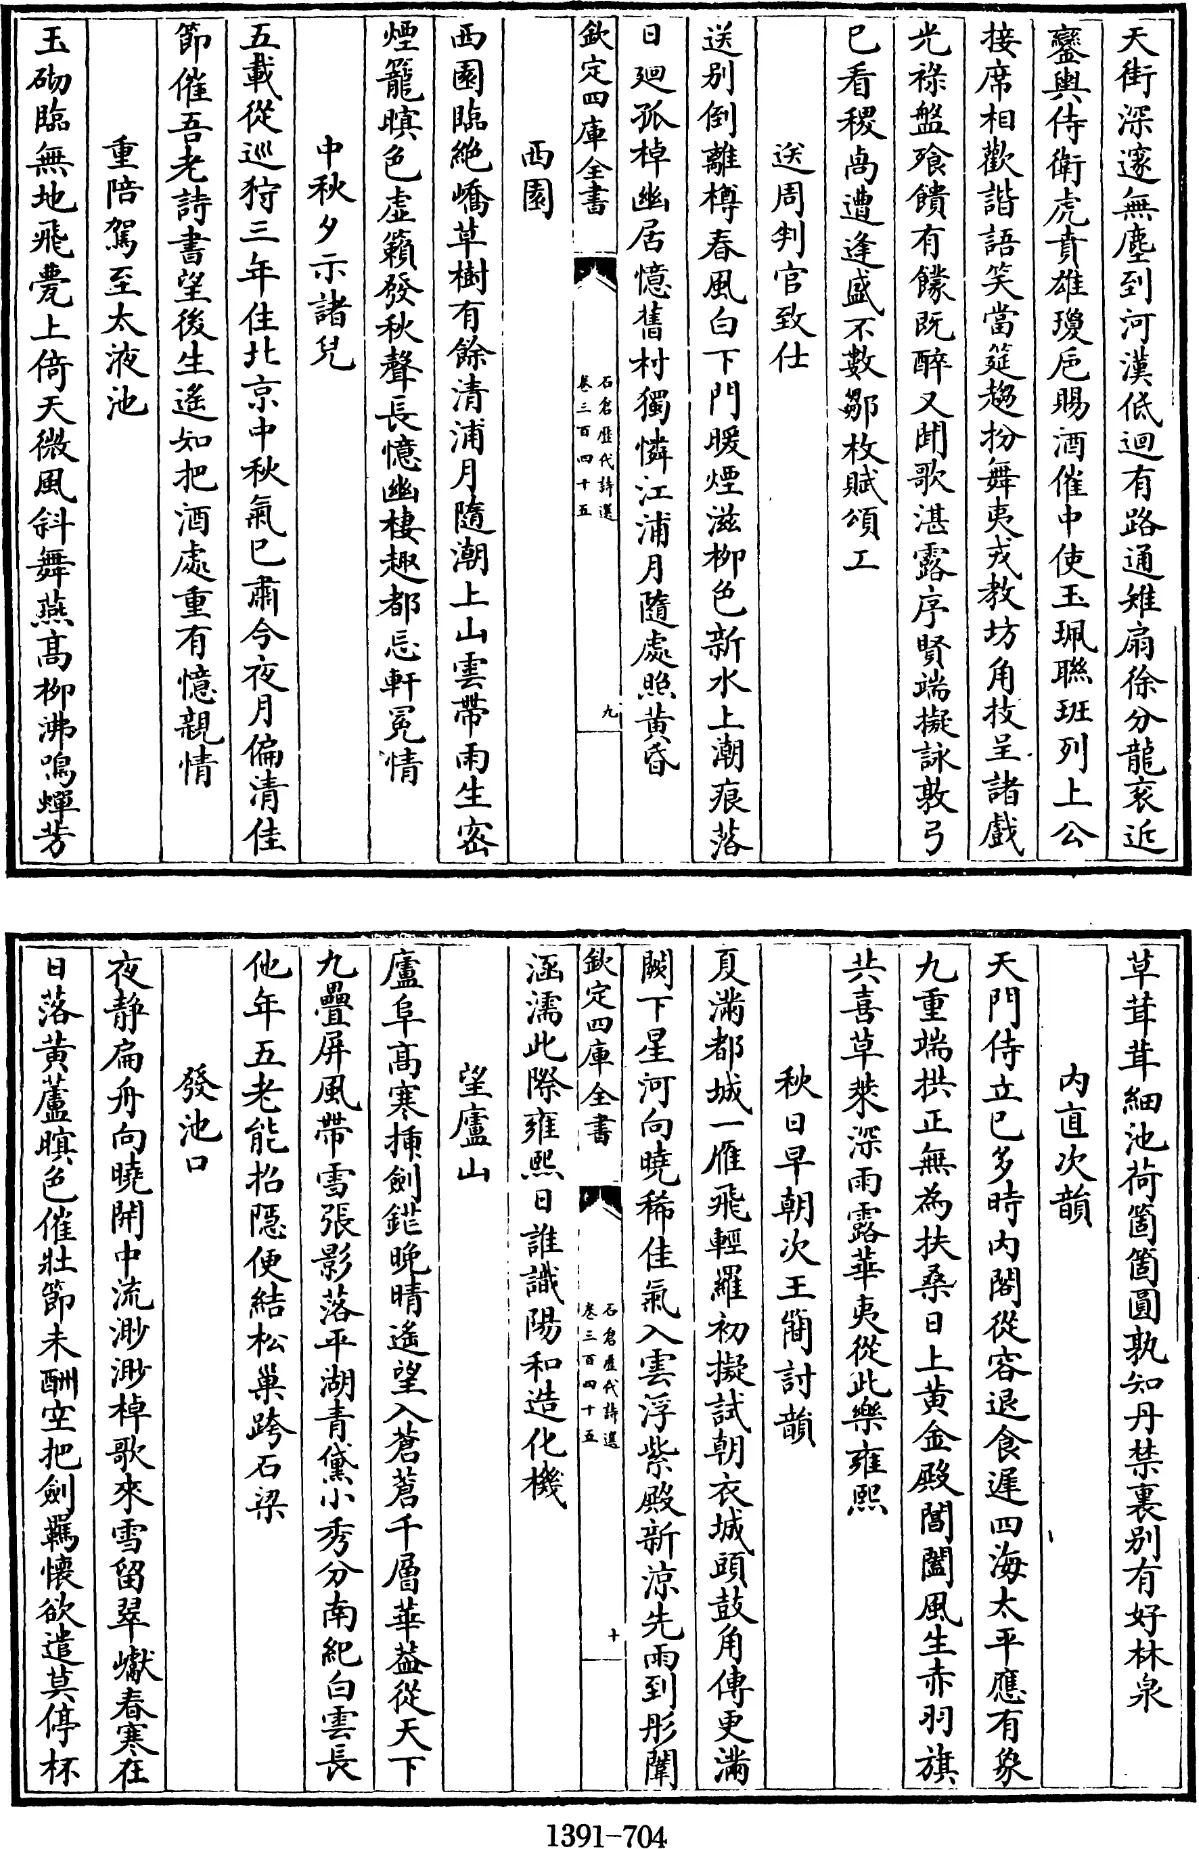 天街深邃無塵到河漢低迴有路通雉扇徐分龍衮近
鑾輿侍衛虎賁雄瓊巵賜酒催中使玉珮聯班列上公
接席相歡諧語笑當筵趨扮舞夷戎教坊角技呈諸戲
光祿盤飱饋有饛既醉又聞歌湛露序賢端擬詠敦弓
已看稷卨遭逢盛不數鄒枚賦頌工
送周判官致仕
送别倒離樽春風白下門暖煙滋柳色新水上潮痕落
日廻孤棹幽居憶舊村獨憐江浦月隨處照黄昏
欽定四庫全書
石倉歷代詩選
卷三百四十五
九
西園
西園臨絶嶠草樹有餘清浦月隨潮上山雲帶雨生密
煙籠暝色虛籟發秋聲長憶幽棲趣都忘軒冕情
中秋夕示諸兒
五載從巡狩三年住北京中秋氣已肅今夜月偏清佳
節催吾老詩書望後生遙知把酒處重有憶親情
重陪駕至太液池
玉砌臨無地飛甍上倚天微風斜舞燕高柳沸鳴蟬芳
草茸茸細池荷箇箇圓孰知丹禁裏别有好林泉
内直次韻
天門侍立已多時内閣從容退食遲四海太平應有象
九重端拱正無為扶桑日上黄金殿閶闔風生赤羽旗
共喜草萊深雨露華夷從此樂雍熙
秋日早朝次王簡討韻
夏滿都城一雁飛輕羅初擬試朝衣城頭鼓角傳更滿
闕下星河向曉稀佳氣入雲浮紫殿新涼先雨到彤闈
欽定四庫全書
石倉歷代詩選
卷三百四十五
十
涵濡此際雍熙日誰識陽和造化機
望廬山
廬阜高寒揷劍鋩晚晴遙望入蒼蒼千層華葢從天下
九疊屏風帶雪張影落平湖青黛小秀分南紀白雲長
他年五老能招隱便結松巢跨石梁
發池口
夜静扁舟向曉開中流渺渺棹歌來雪留翠巘春寒在
日落黄蘆暝色催壯節未酬空把劍羈懷欲遣莫停杯
1391-704